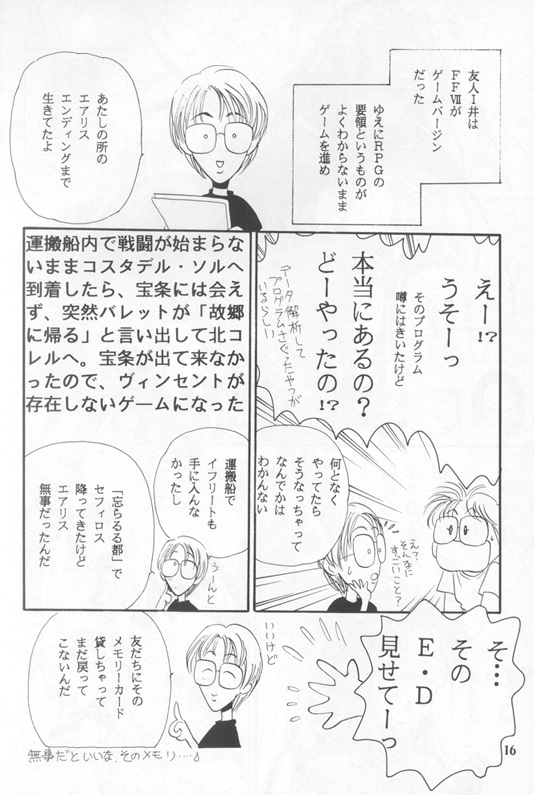 友人Ｉ井は
ＦＦⅦが
ゲームバージン
だった
ゆえにＲＰＧの
要領というものが
よくわからないまま
ゲームを進め
あたしの所の
エアリス
エンディングまで
生きてたよ
えー!?
うそーっ
そのプログラム
噂にはきいたけど
本当にあるの?
どーやったの!?
データ解析して
プログラムさぐったやつが
いるらしい
運搬船内で戦闘が始まらな
いままコスタデル・ソルへ
到着したら、宝条には会え
ず、突然バレットが「故郷
に帰る」と言い出して北コ
レルへ。宝条が出て来なか
ったので、ヴィンセントが
存在しないゲームになった
何となく
やってたら
そうなっちゃって
なんでかは
わかんない
え?
そんなに
すごいこと?
運搬船で
イフリートも
手に入んな
かったし
うーんと
「忘らるる都」で
セフィロス
降ってきたけど
エアリス
無事だったんだ
そ…
その
Ｅ・Ｄ
見せてーっ
いいけど
友だちにその
メモリーカード
貸しちゃって
まだ戻って
こないんだ
無事だといいな、そのメモリ……♪
16